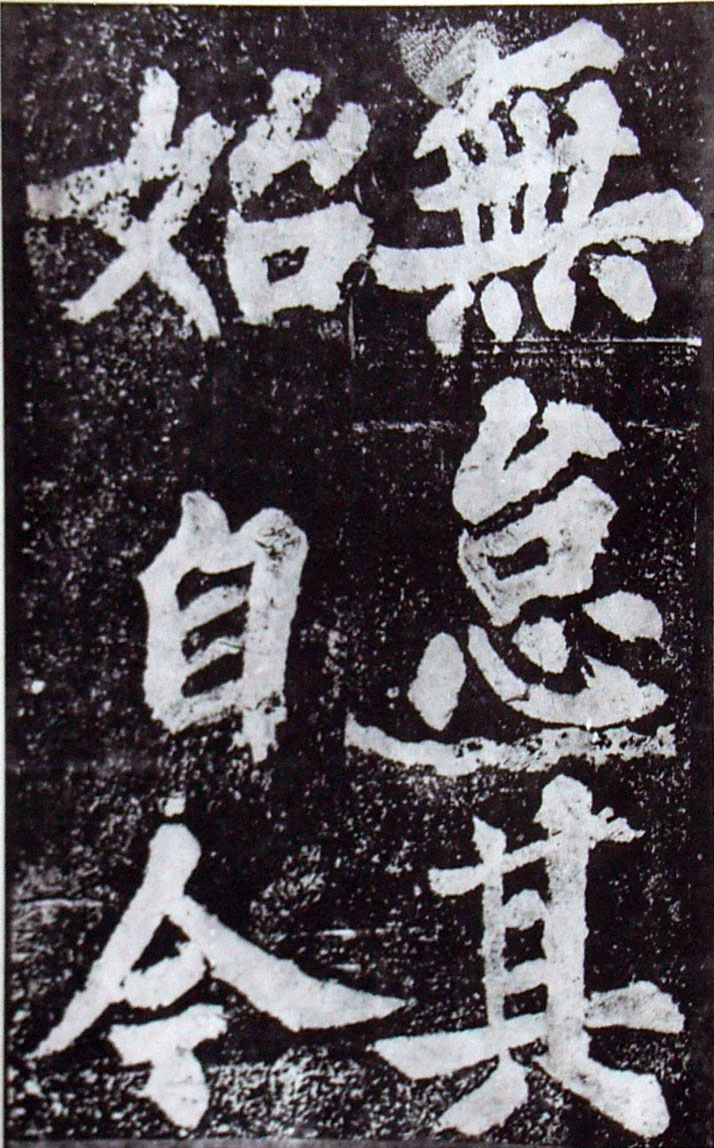 無怠其
始自今